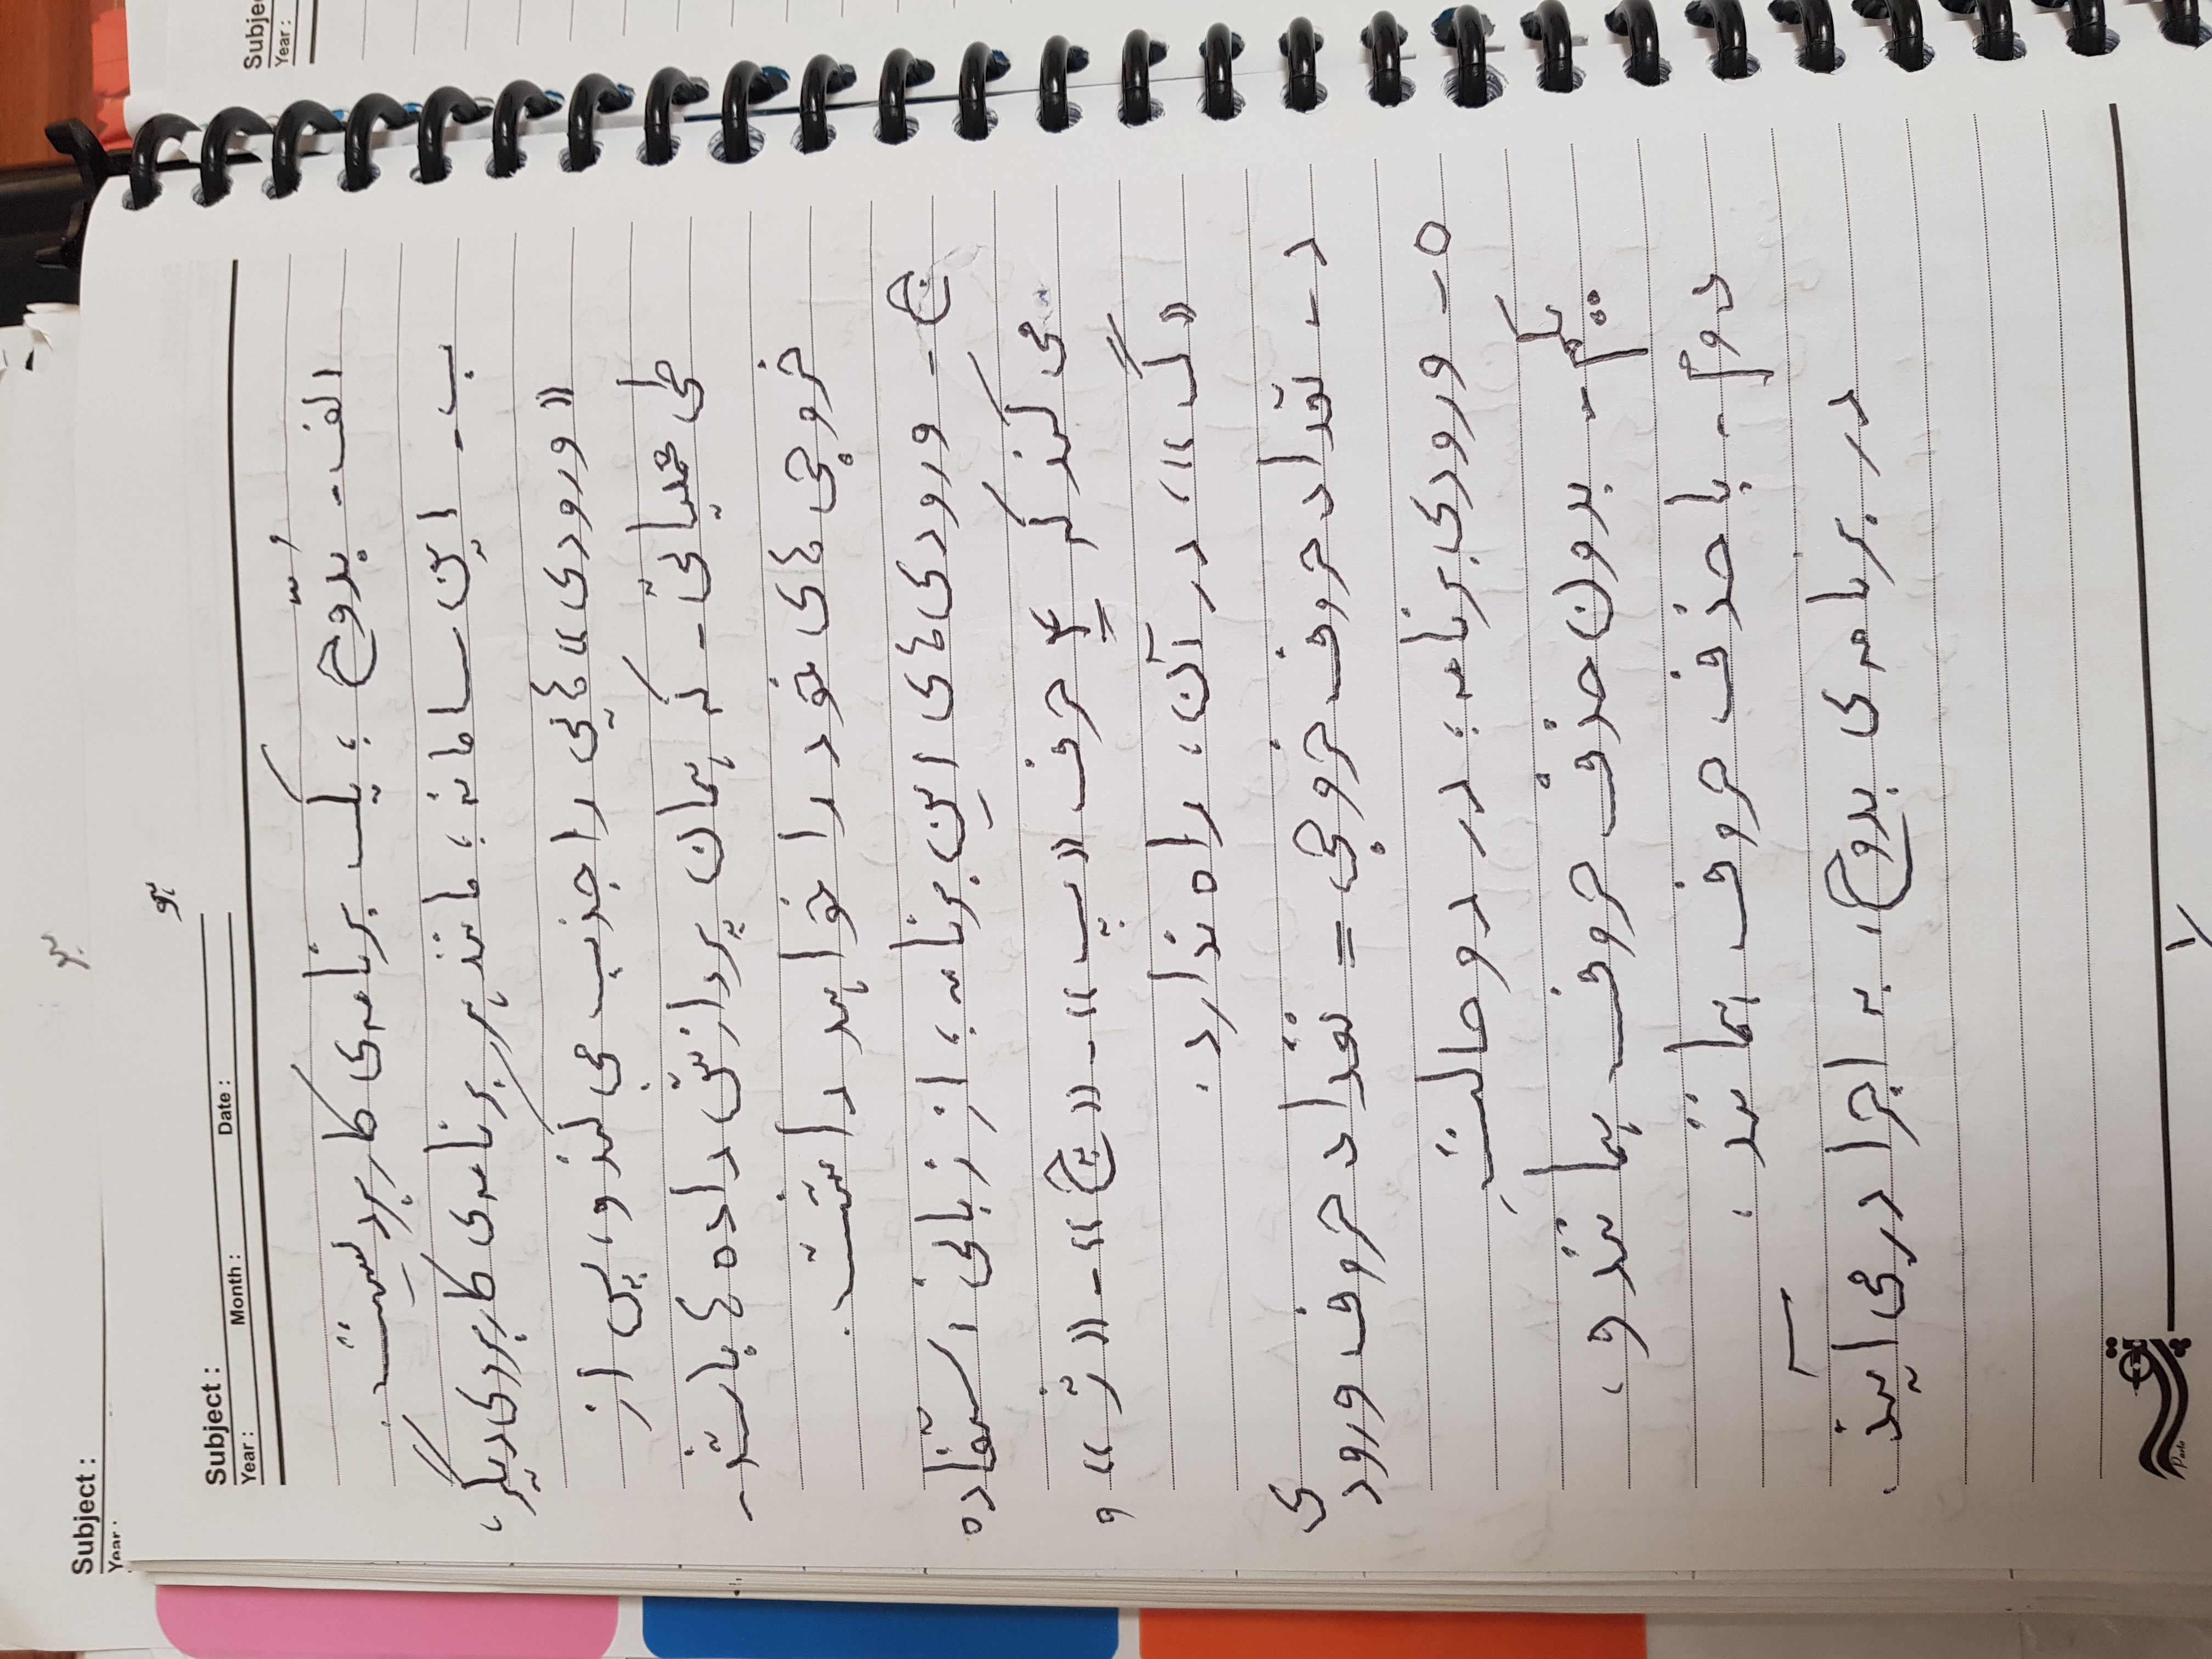 Subject :
Year :
هو
Subject :
Year : Month : Date :
الف - بُدّوح ؛ یک برنامه‌ی کاربردیست .
ب - این سامانه ؛ مانند هر برنامه‌ی کاربردی دیگر ،
« ورودی » هایی را جذب می کند و ، پس از
طی عملیاتی - که همان پردازش داده ها باشد -
خروجی های خود را خواهد داشت .
ج - ورودی های این برنامه ؛ از زبانی استفاده
می کند که ۴ حرف « پ » - « چ » - « ژ » و
« گ » ، در آن ، راه ندارد .
د - تعداد حروف خروجی = تعداد حروف ورودی
ه - ورودی برنامه ؛ در دو حالتِ
یکم - بدون حذف حروف همانند و ،
دوم - با حذف حروف همانند ،
در برنامه ی بدوح ، به اجرا در می آیند .
Parla
۱
Subje
Year :